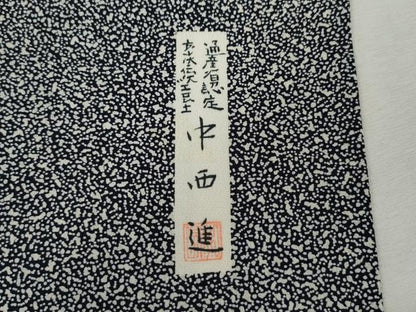 通産省認定
京染伝統工芸士
中西進